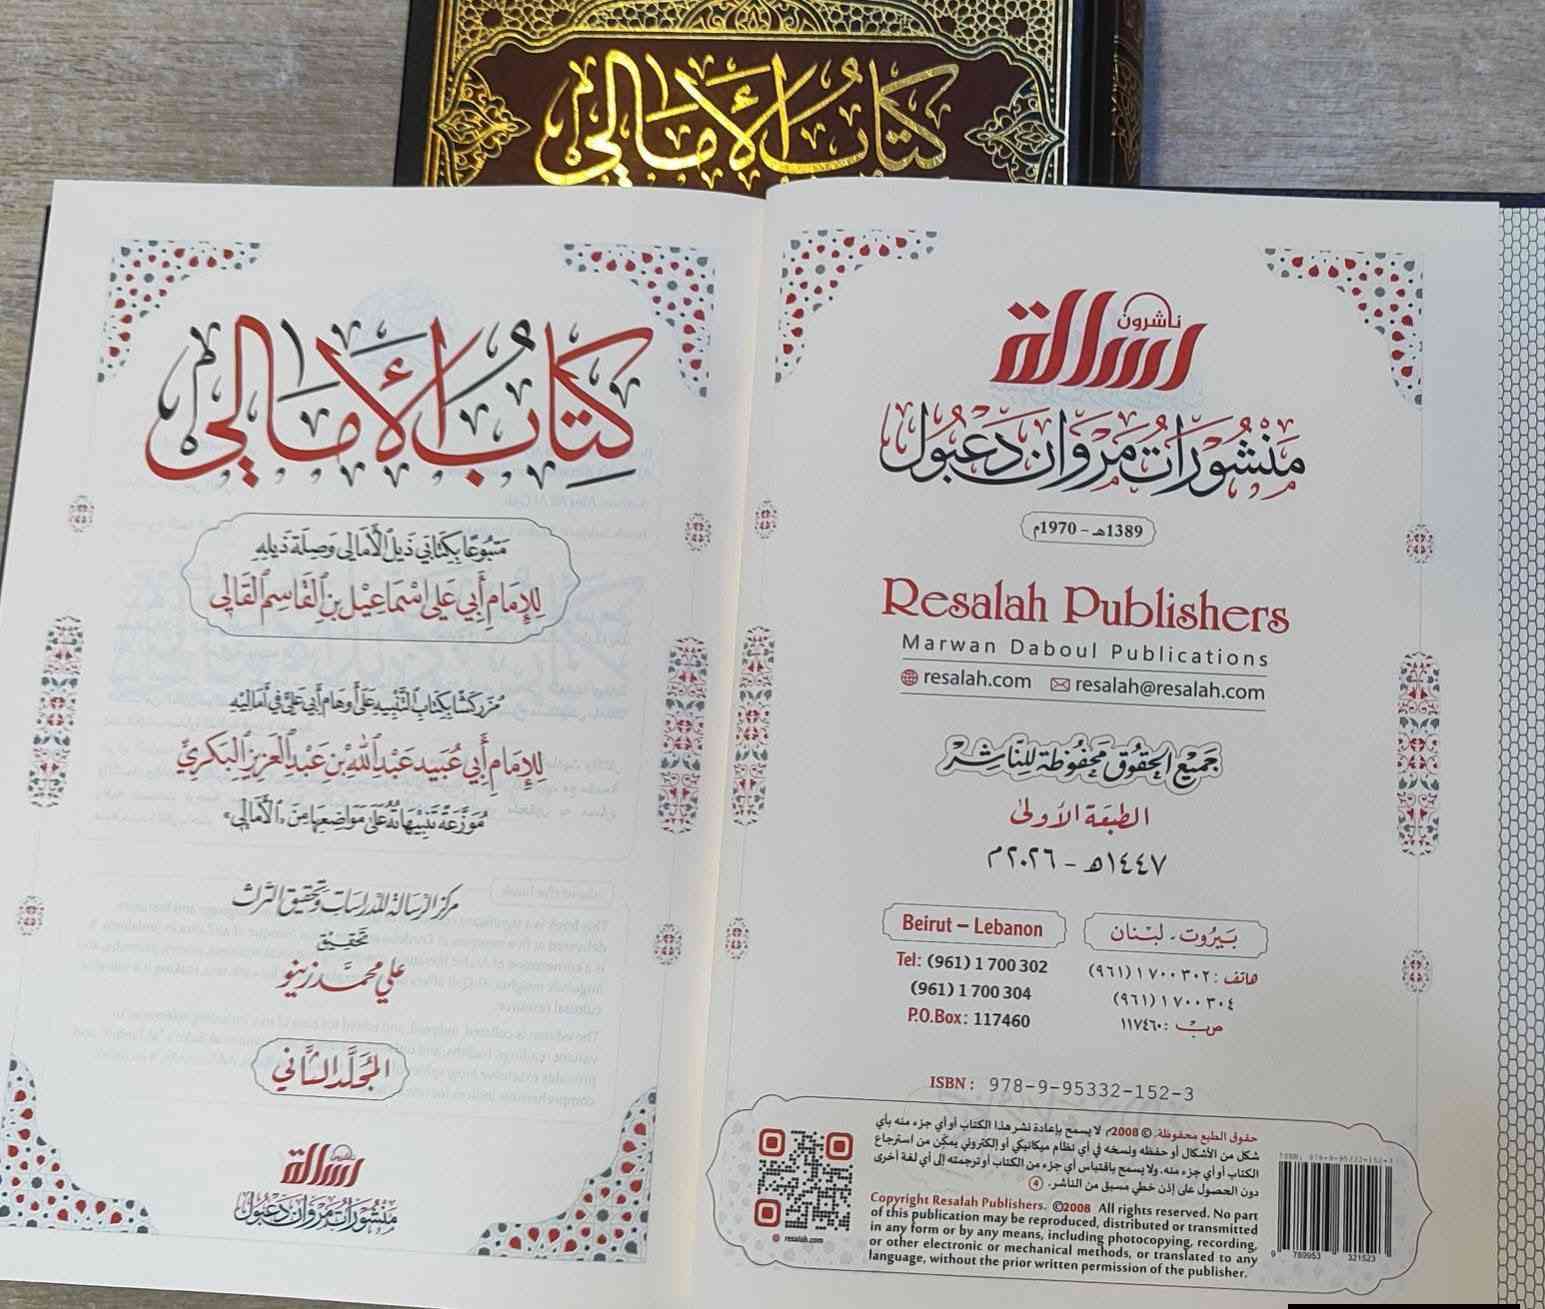 كتاب الأمالي
ناشرون
رسالة
منشورات مروان دعبول
1389هـ - 1970م
Resalah Publishers
Marwan Daboul Publications
resalah.com resalah@resalah.com
جميع الحقوق محفوظة للناشر
الطبعة الأولى
١٤٤٧هـ - ٢٠٢٦م
بيروت - لبنان
هاتف : ٧٠٠٣٠٢ ١ (٩٦١)
٧٠٠٣٠٤ ١ (٩٦١)
ص ب : ١١٧٤٦٠
Beirut – Lebanon
Tel: (961) 1 700 302
(961) 1 700 304
P.O.Box: 117460
ISBN : 978-9-95332-152-3
حقوق الطبع محفوظة. © 2008م لا يسمح بإعادة نشر هذا الكتاب أو أي جزء منه بأي
شكل من الأشكال أو حفظه ونسخه في أي نظام ميكانيكي أو إلكتروني يمكن من استرجاع
الكتاب أو أي جزء منه. ولا يسمح باقتباس أي جزء من الكتاب أو ترجمته إلى أي لغة أخرى
دون الحصول على إذن خطي مسبق من الناشر. 4
Copyright Resalah Publishers. ©2008 All rights reserved. No part
of this publication may be reproduced, distributed or transmitted
in any form or by any means, including photocopying, recording,
or other electronic or mechanical methods, or translated to any
language, without the prior written permission of the publisher.
resalah.com
ISBN: 978-9-95332-152-3
9 789953 321523
كِتَابُ الأَمَالِي
متبوعًا بكتابي ذيل الأمالي وصلة ذيله
للإمام أبي علي إسماعيل بن القاسم القالي
مزركشا بكتاب التنبيه على أوهام أبي علي في أماليه
للإمام أبي عبيد عبد الله بن عبد العزيز البكري
موزعة تنبيهاته على مواضعها من «الأمالي»
مركز الرسالة للدراسات وتحقيق التراث
تحقيق
علي محمد زينو
المجلد الثاني
ناشرون
رسالة
منشورات مروان دعبول